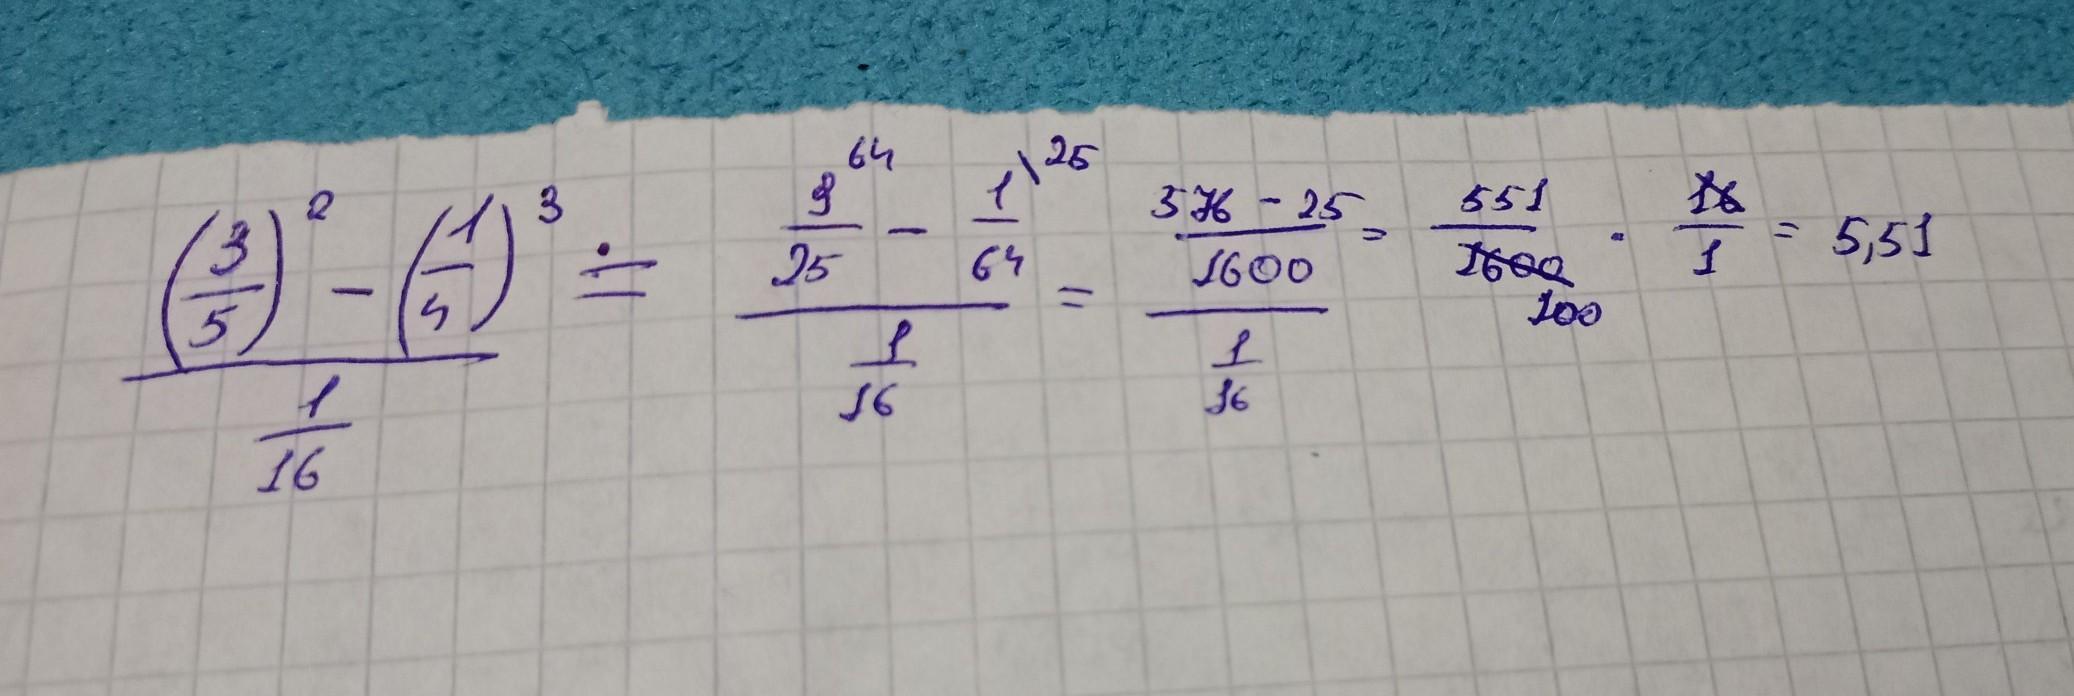 (3/5)² - (1/4)³ / 1/16 = 9/25 ⁶⁴ - 1/64 \²⁵ / 1/16 = 576 - 25 / 1600 / 1/16 = 551/1600 100 · 16/1 = 5,51